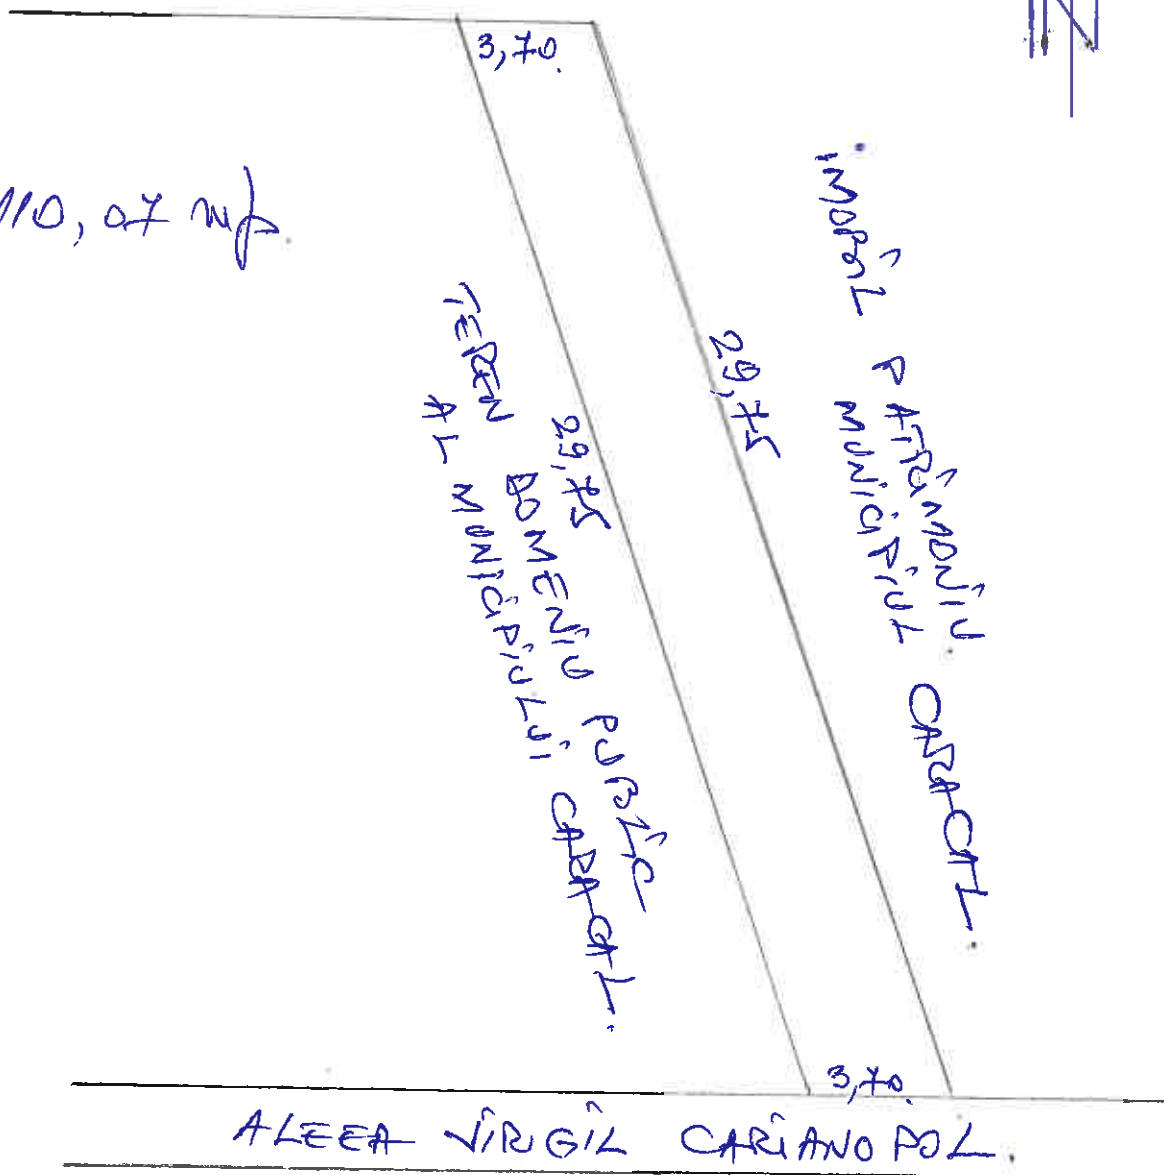 N
3,70.
110,07 mp.
29,75
29,75
IMOBIL PATRIMONIU
MUNICIPIUL CARACAL.
TEREN DOMENIU PUBLIC
AL MUNICIPIULUI CARACAL.
3,70.
ALEEA VIRGIL CARIANOPOL.